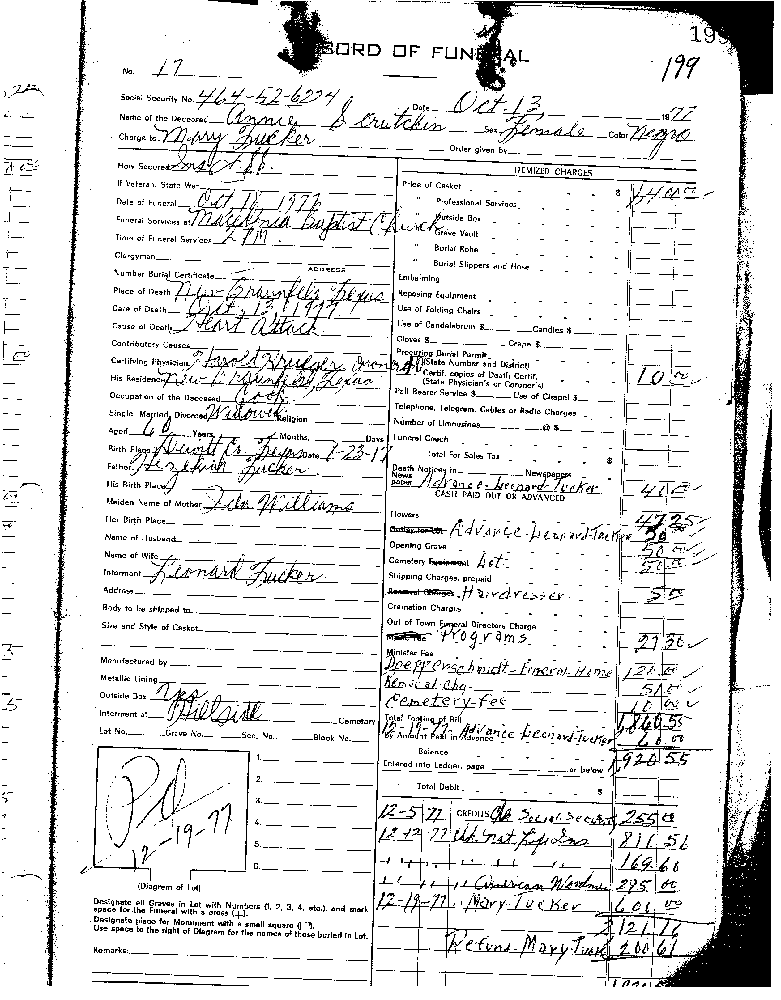 199
RECORD OF FUNERAL
199
No. 17
Social Security No. 464-52-6274
Date Oct 13, 1977
Name of the Deceased Annie Scrutchin Sex Female Color Negro
Charge to Mary Tucker
Order given by
How Secured
If Veteran, State War
Date of Funeral Oct 18, 1977
Funeral Services at Macedonia Baptist Church
Time of Funeral Services 2 PM
Clergyman
ADDRESS
Number Burial Certificate
Place of Death New Braunfels Texas
Date of Death Oct, 13, 1977
Cause of Death Heart Attack
Contributory Causes
Certifying Physician Harold Krueger Coroner
His Residence New Braunfels, Texas
Occupation of the Deceased Cook
Single Married, Divorced Widowed Religion
Aged 60 Years Months, Days
Birth Place Dewitt Co. Texas Date 7-23-17
Father Hezekiah Tucker
His Birth Place
Maiden Name of Mother Williams
Her Birth Place
Name of Husband
Name of Wife
Informant Leonard Tucker
Address
Body to be shipped to
Size and Style of Casket
Manufactured by
Metallic Lining
Outside Box Yes
Interment at Hillside Cemetery
Lot No. Grave No. Sec. No. Block No.
Pd
12-19-77
1.
2.
3.
4.
5.
6.
(Diagram of Lot)
Designate all Graves in Lot with Numbers (1, 2, 3, 4, etc.), and mark
space for the Funeral with a cross (+).
Designate place for Monument with a small square (□).
Use space to the right of Diagram for the names of those buried in Lot.
Remarks:
ITEMIZED CHARGES
Price of Casket $ 1440.00
" Professional Services
" Outside Box
" Grave Vault
" Burial Robe
" Burial Slippers and Hose
Embalming
Reposing Equipment
Use of Folding Chairs
Use of Candelabrum $ Candles $
Gloves $ Crape $
Procuring Burial Permit
(State Number and District)
Certif. copies of Death Certif.
(State Physician's or Coroner's) 10 00
Pall Bearer Service $ Use of Chapel $
Telephone, Telegram, Cables or Radio Charges
Number of Limousines @ $
Funeral Coach
Total For Sales Tax $
Death Notices in Newspapers
News paper Advance-Leonard Tucker
CASH PAID OUT OR ADVANCED
Flowers 47 25
Outlay for Lot Advance-Leonard Tucker
Opening Grave 50 00
Cemetery Equipment Lot 50 00
Shipping Charges, prepaid
Removal Charges Hairdresser
Cremation Charges
Out of Town Funeral Directors Charge
Programs 27 30
Minister Fee
Doepperschmidt-Funeral-Home
Removal Chg.
Cemetery-Fee 10 00
Total Footing of Bill
12-19-77 By Amount Paid in Advance Advance Leonard-Tucker
Balance
Entered into Ledger, page or below 1920 55
Total Debit $
12-5 77 CREDITS Social Security 255 00
12-12-77 811 56
" " " " " " 169 60
" " " American Woodmen 285 00
12-19-77 Mary-Tucker 601 00
2121 16
Refund-Mary Tucker 200 61